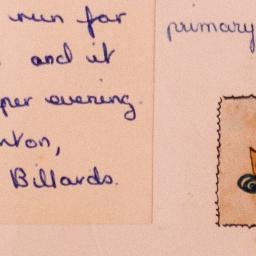 run for
and it
per evening.
nton,
Billards.
primary